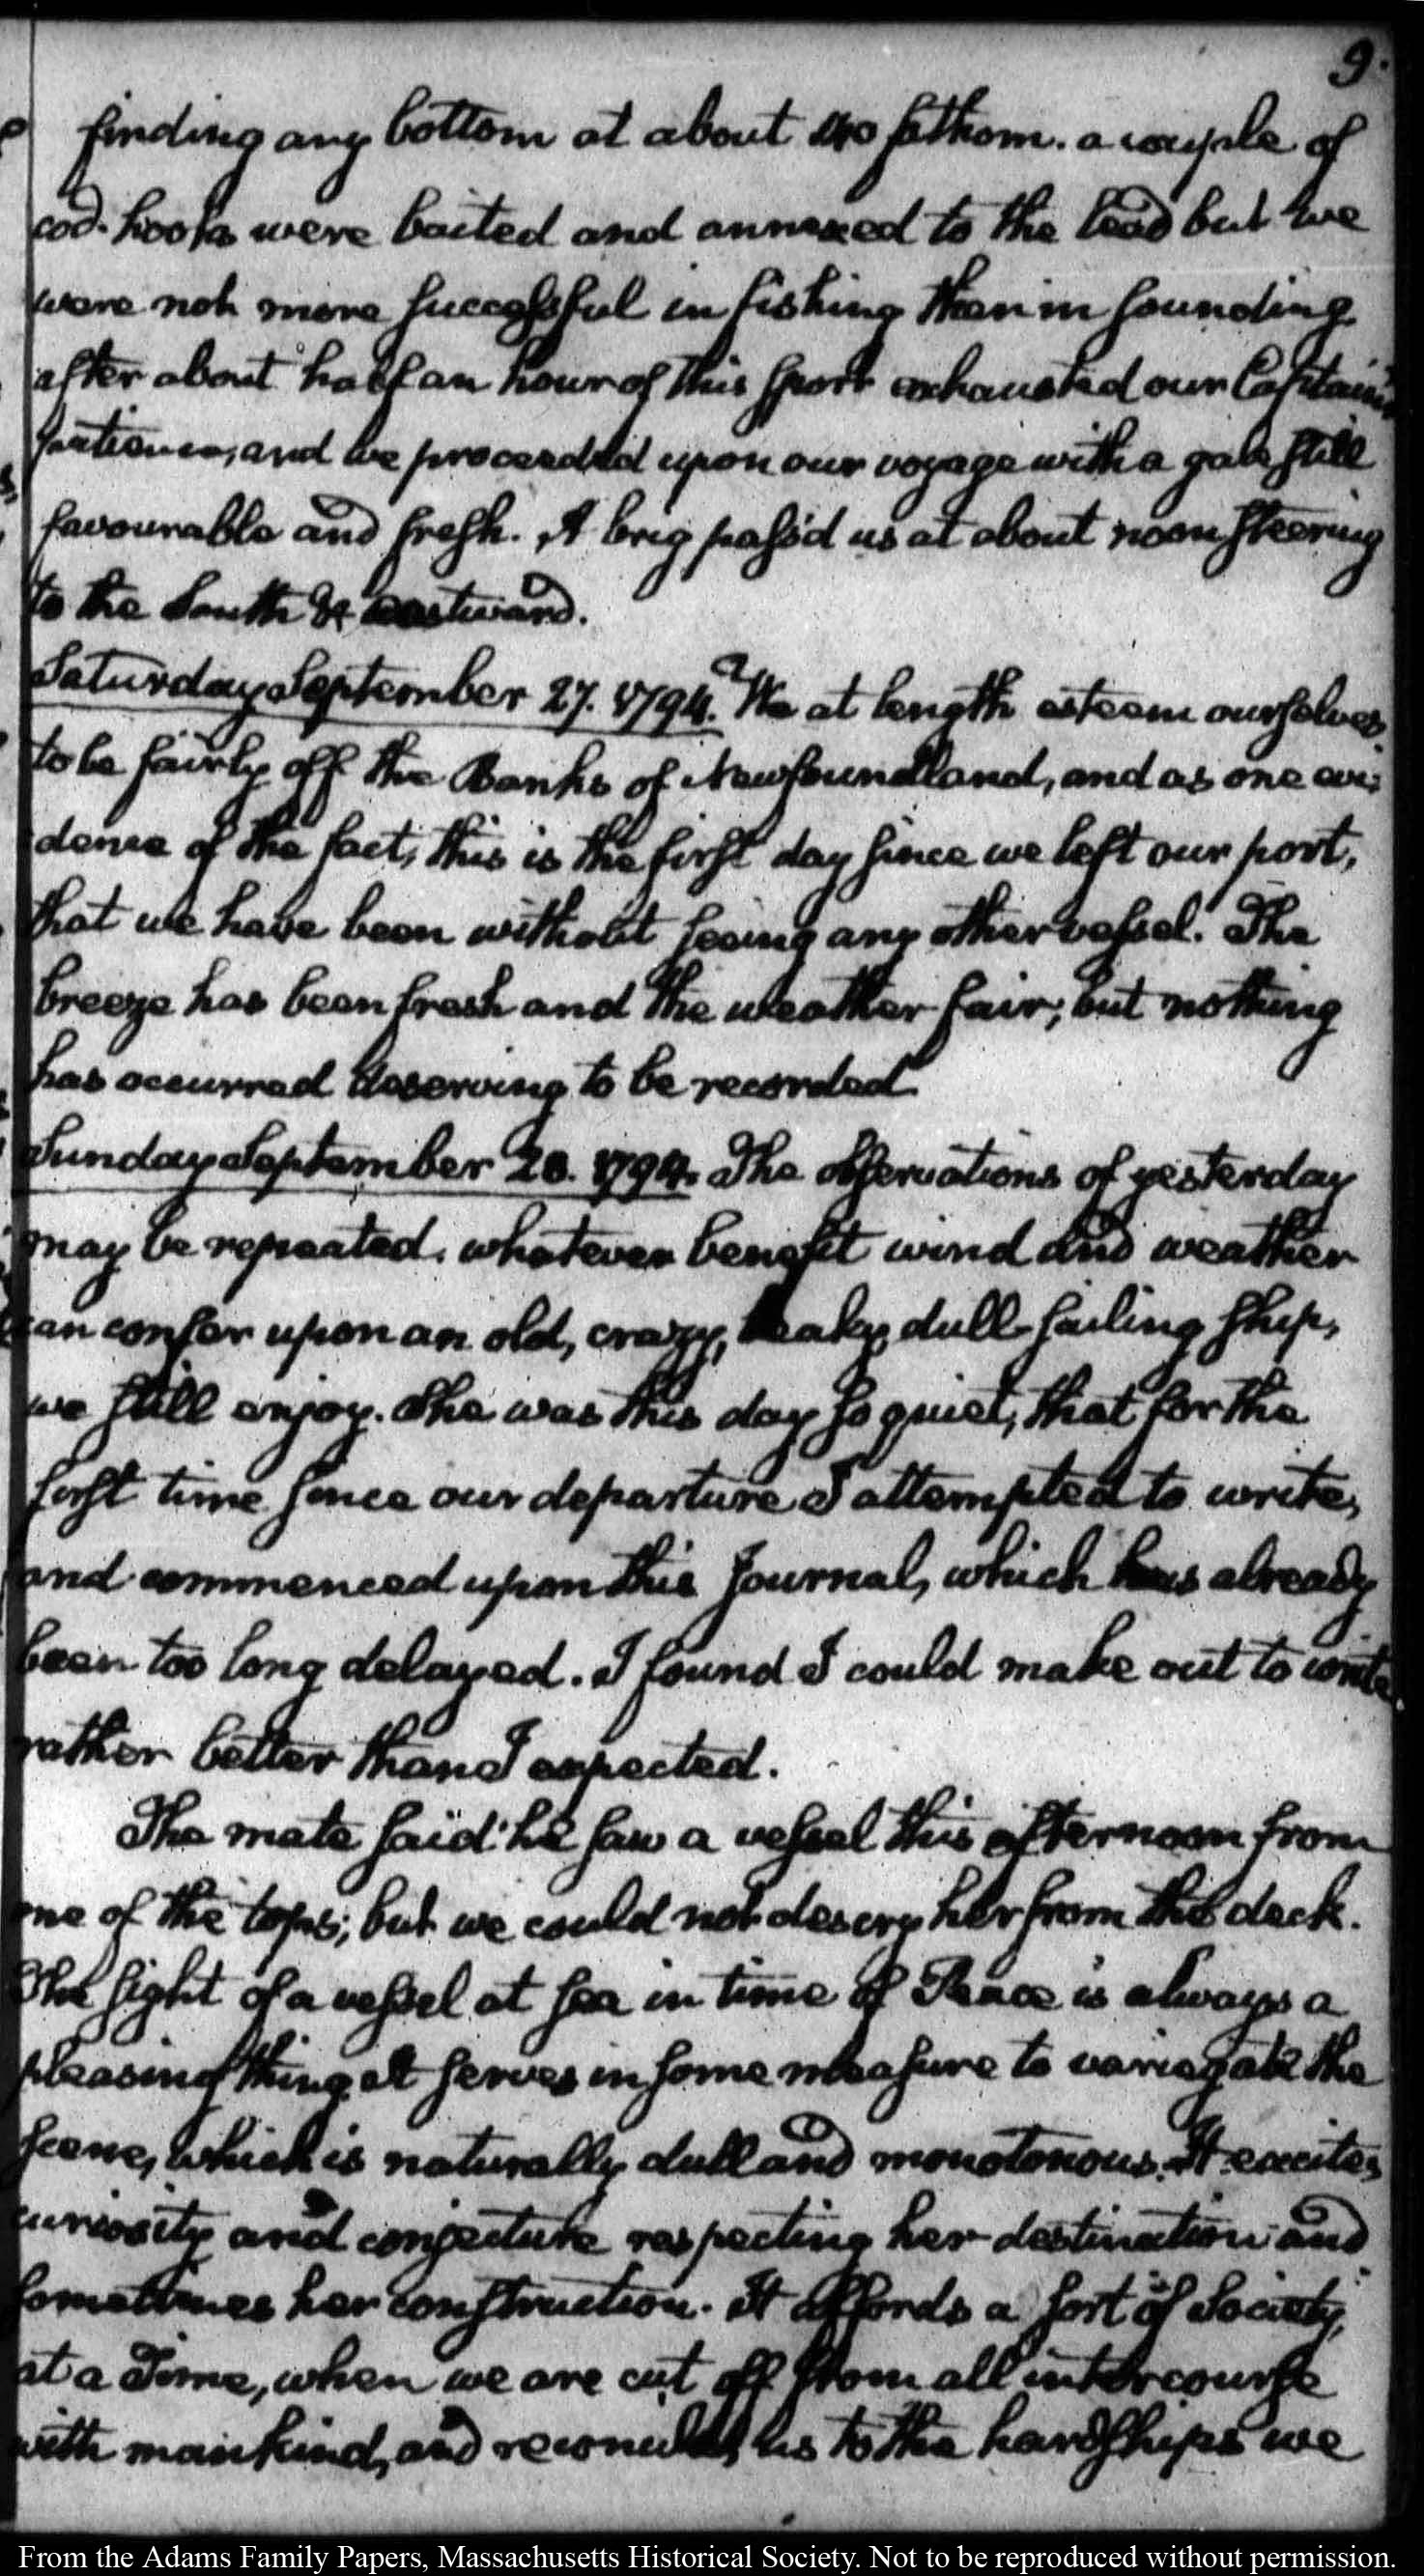 9.
finding any bottom at about 40 fathom. a couple of
cod-hooks were baited and annexed to the lead but we
were not more successful in fishing than in sounding
after about half an hour of this sport exhausted our Captain's
patience, and we proceeded upon our voyage with a gale still
favourable and fresh. A brig pass'd us at about noon steering
to the South & eastward.
Saturday September 27. 1794. We at length esteem ourselves
to be fairly off the Banks of Newfoundland, and as one evi-
dence of the fact, this is the first day since we left our port,
that we have been without seeing any other vessel. The
breeze has been fresh and the weather fair; but nothing
has occurred deserving to be recorded.
Sunday September 28. 1794. The observations of yesterday
may be repeated. whatever benefit wind and weather
can confer upon an old, crazy, leaky, dull-sailing ship,
we still enjoy. She was this day so quiet, that for the
first time since our departure I attempted to write,
and commenced upon this Journal, which has already
been too long delayed. I found I could make out to write
rather better than I expected.
The mate said he saw a vessel this afternoon from
one of the tops; but we could not descry her from the deck.
The sight of a vessel at sea in time of Peace is always a
pleasing thing. It serves in some measure to variegate the
scene, which is naturally dull and monotonous. It excites
curiosity and conjecture respecting her destination and
sometimes her construction. It affords a sort of Society,
at a Time, when we are cut off from all intercourse
with mankind, and reconciles us to the hardships we
From the Adams Family Papers, Massachusetts Historical Society. Not to be reproduced without permission.